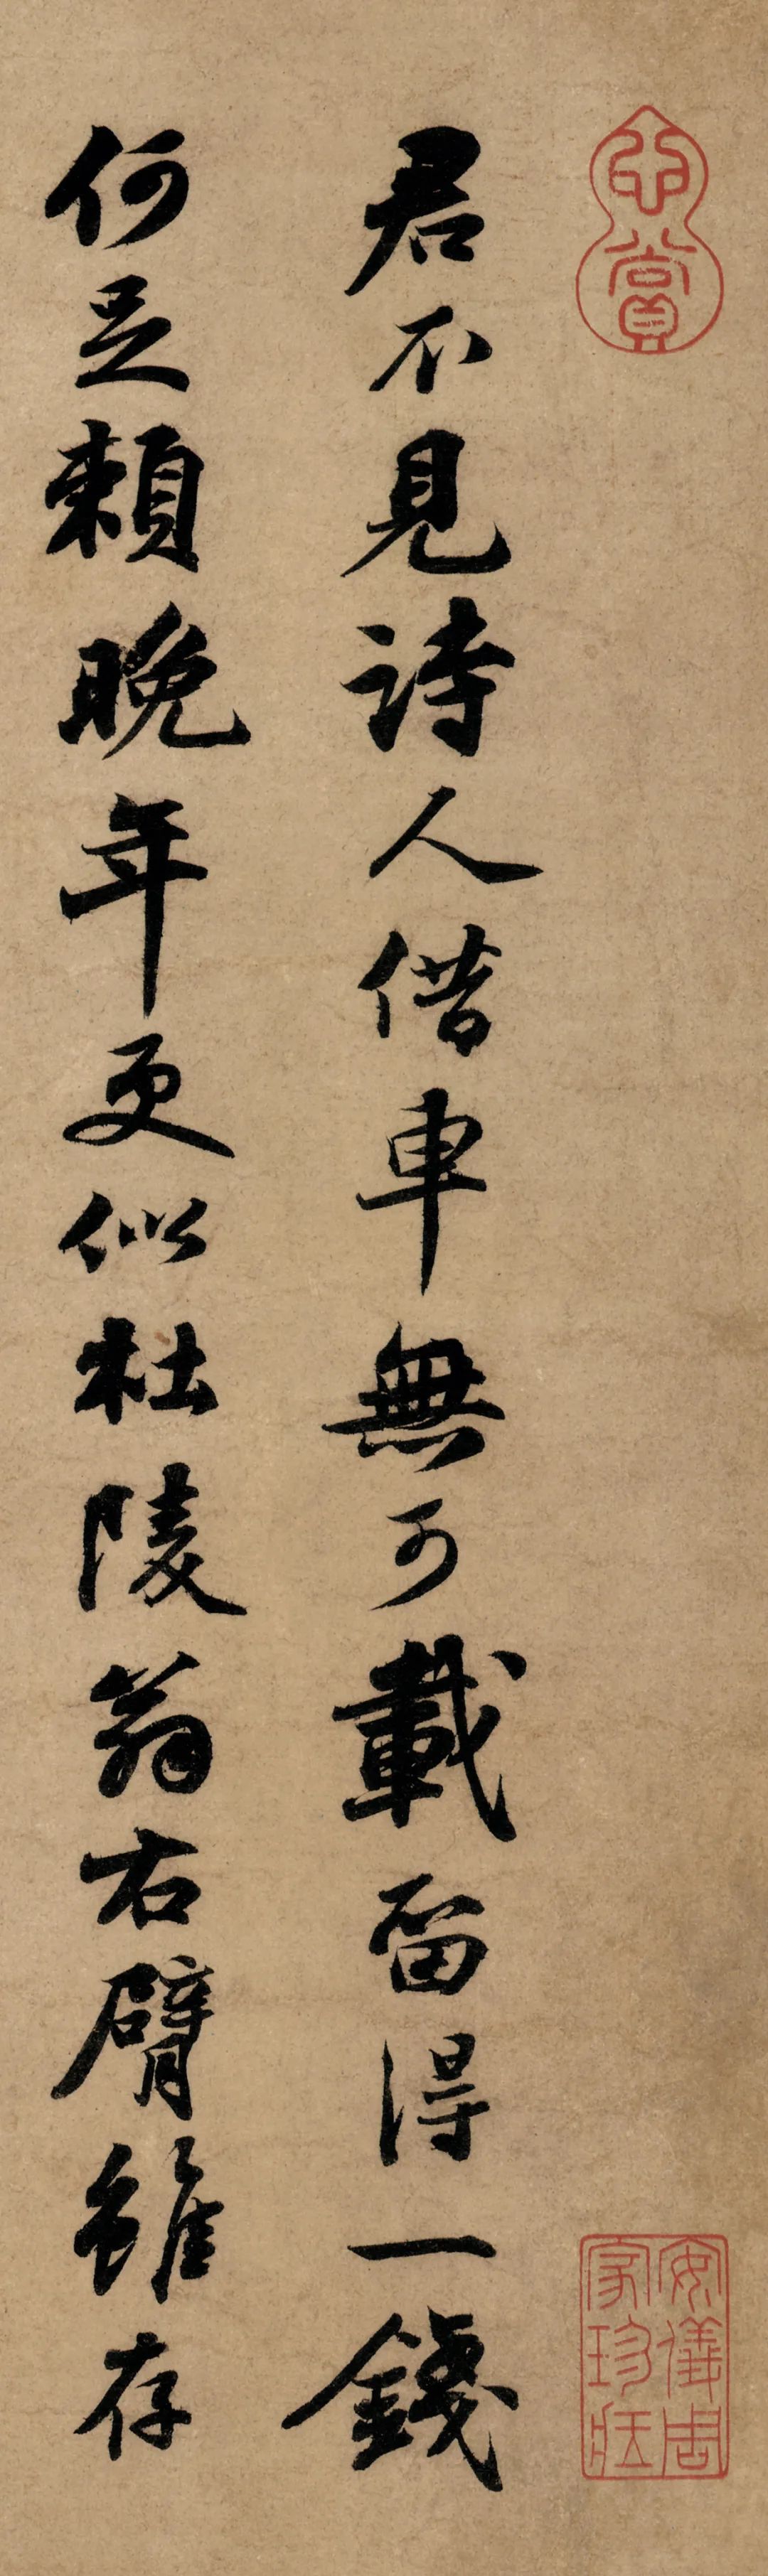 心賞
君不見詩人借車無可載留得一錢
何足賴晚年更似杜陵翁右臂雖存
安儀周
家珍藏